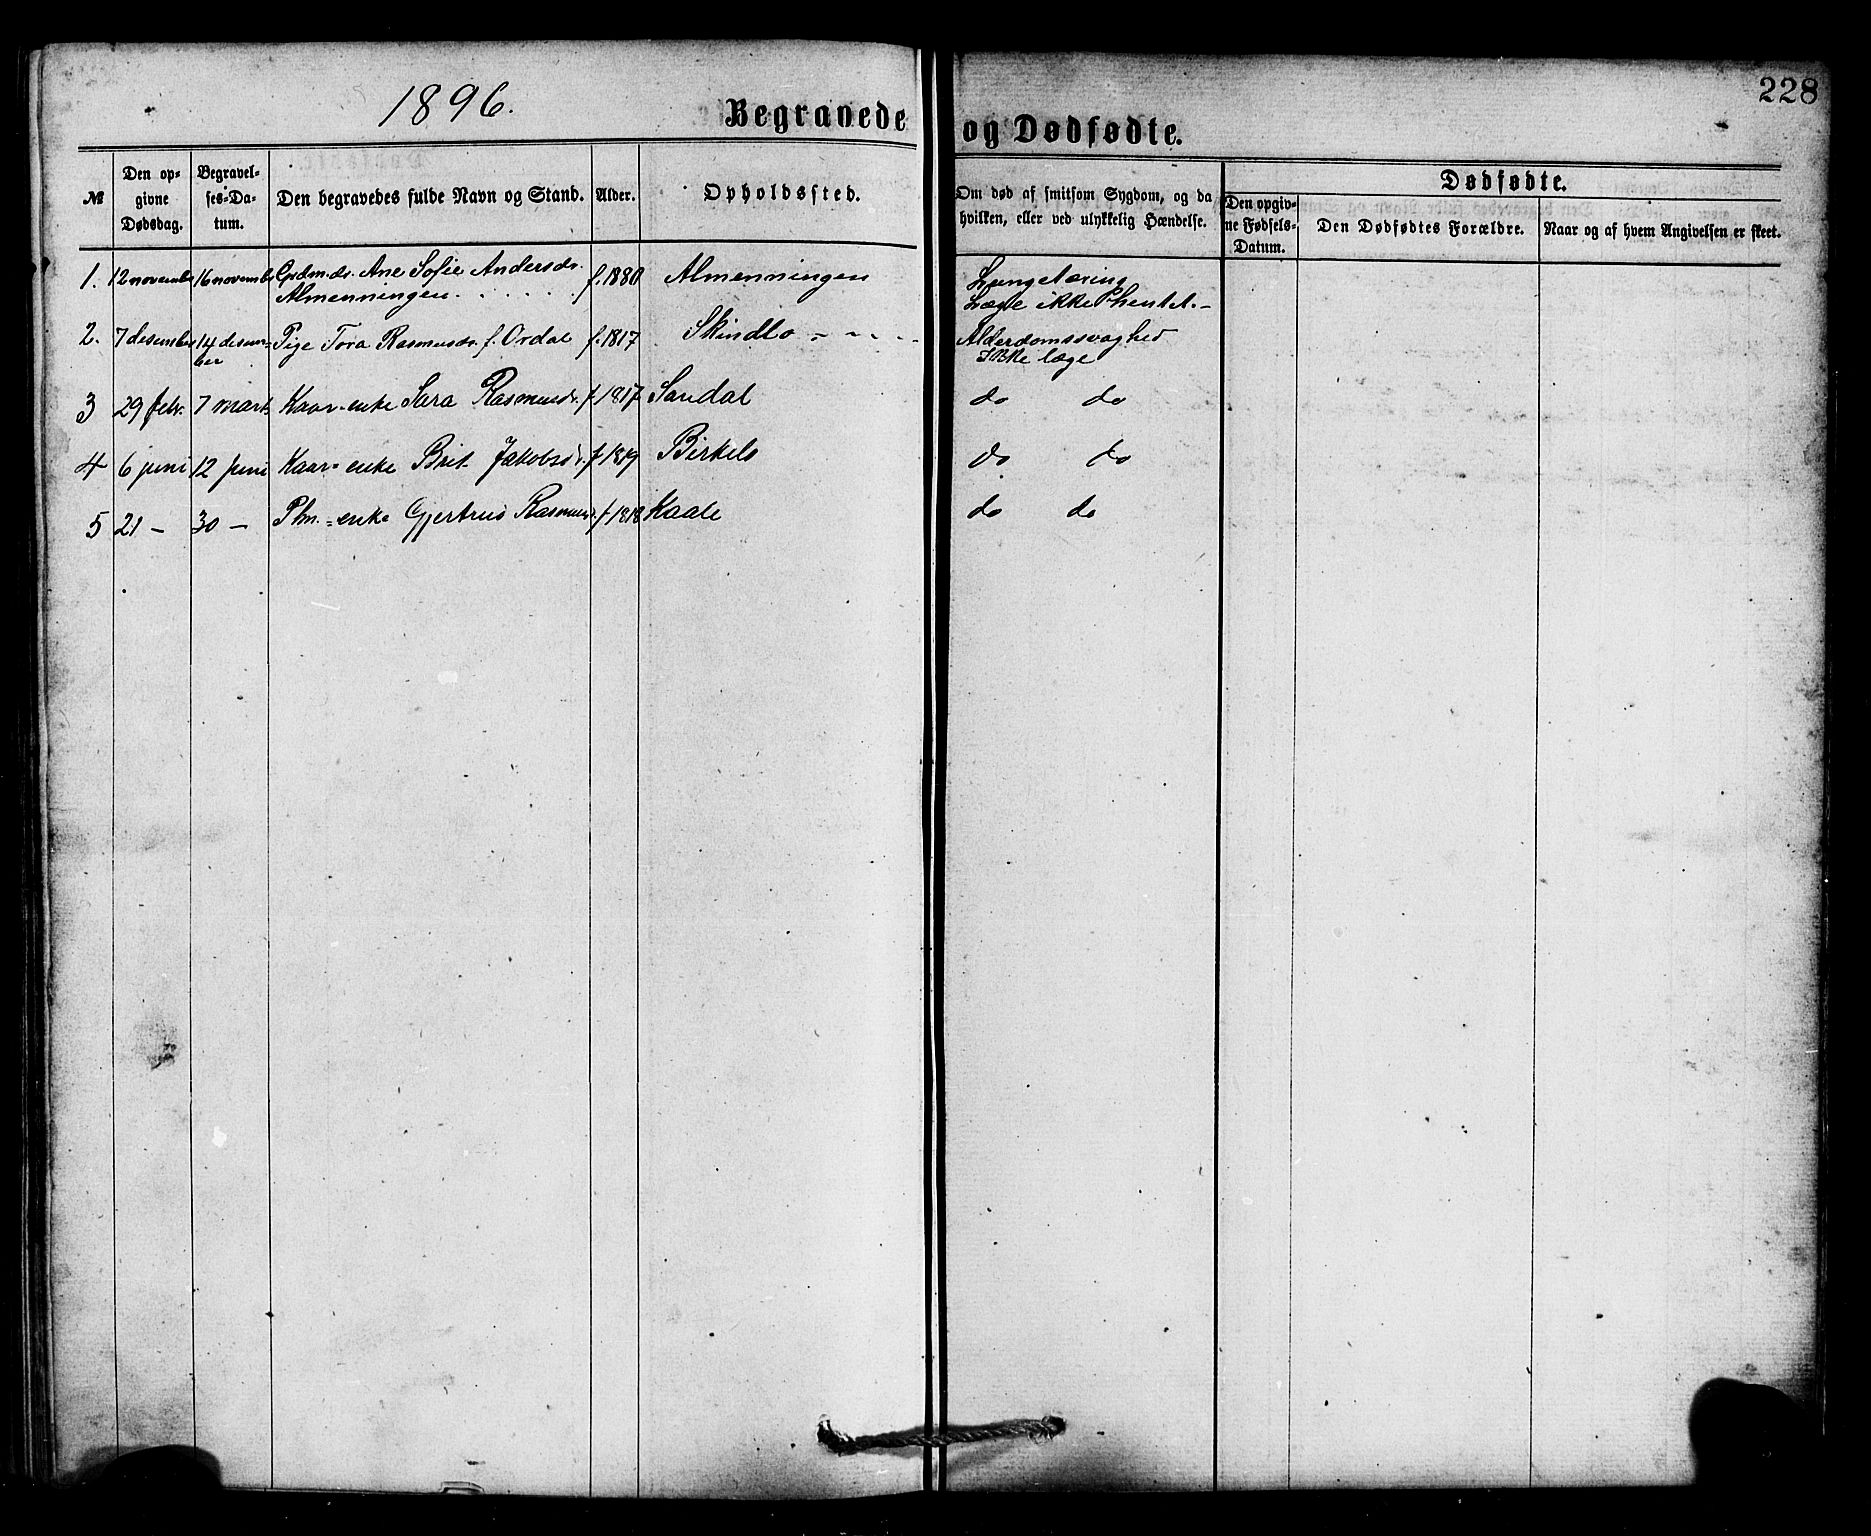 1896.
Begravede og Dødfødte.
228
№
Den opgivne Dødsdag.
Begravelses-Datum.
Den begravedes fulde Navn og Stand.
Alder.
Opholdssted.
Om død af smitsom Sygdom, og da hvilken, eller ved ulykkelig Hændelse.
Dødfødte.
Den opgivne Fødsels-Datum.
Den Dødfødtes Forældre.
Naar og af hvem Angivelsen er skeet.
1. 12 november 16 november Grdm.dr. Ane Sofie Andersdr. f. 1880 Almenningen Lungetæring
Almenningen. Læge ikke hentet.
2. 7 desember 14 desem- Pige Tora Rasmusdr. f. Ordal f. 1817 Skindlo Alderdomssvaghed
ber Ikke læge
3 29 febr. 7 mart Kaar-enke Sara Rasmusdr. f 1817 Sandal do do
4 6 juni 12 juni Kaar-enke Brit Jakobsdr. f 1819 Birkelo do do
5 21 - 30 - Plm.-enke Gjertrud Rasmusd. f 1818 Kaale do do